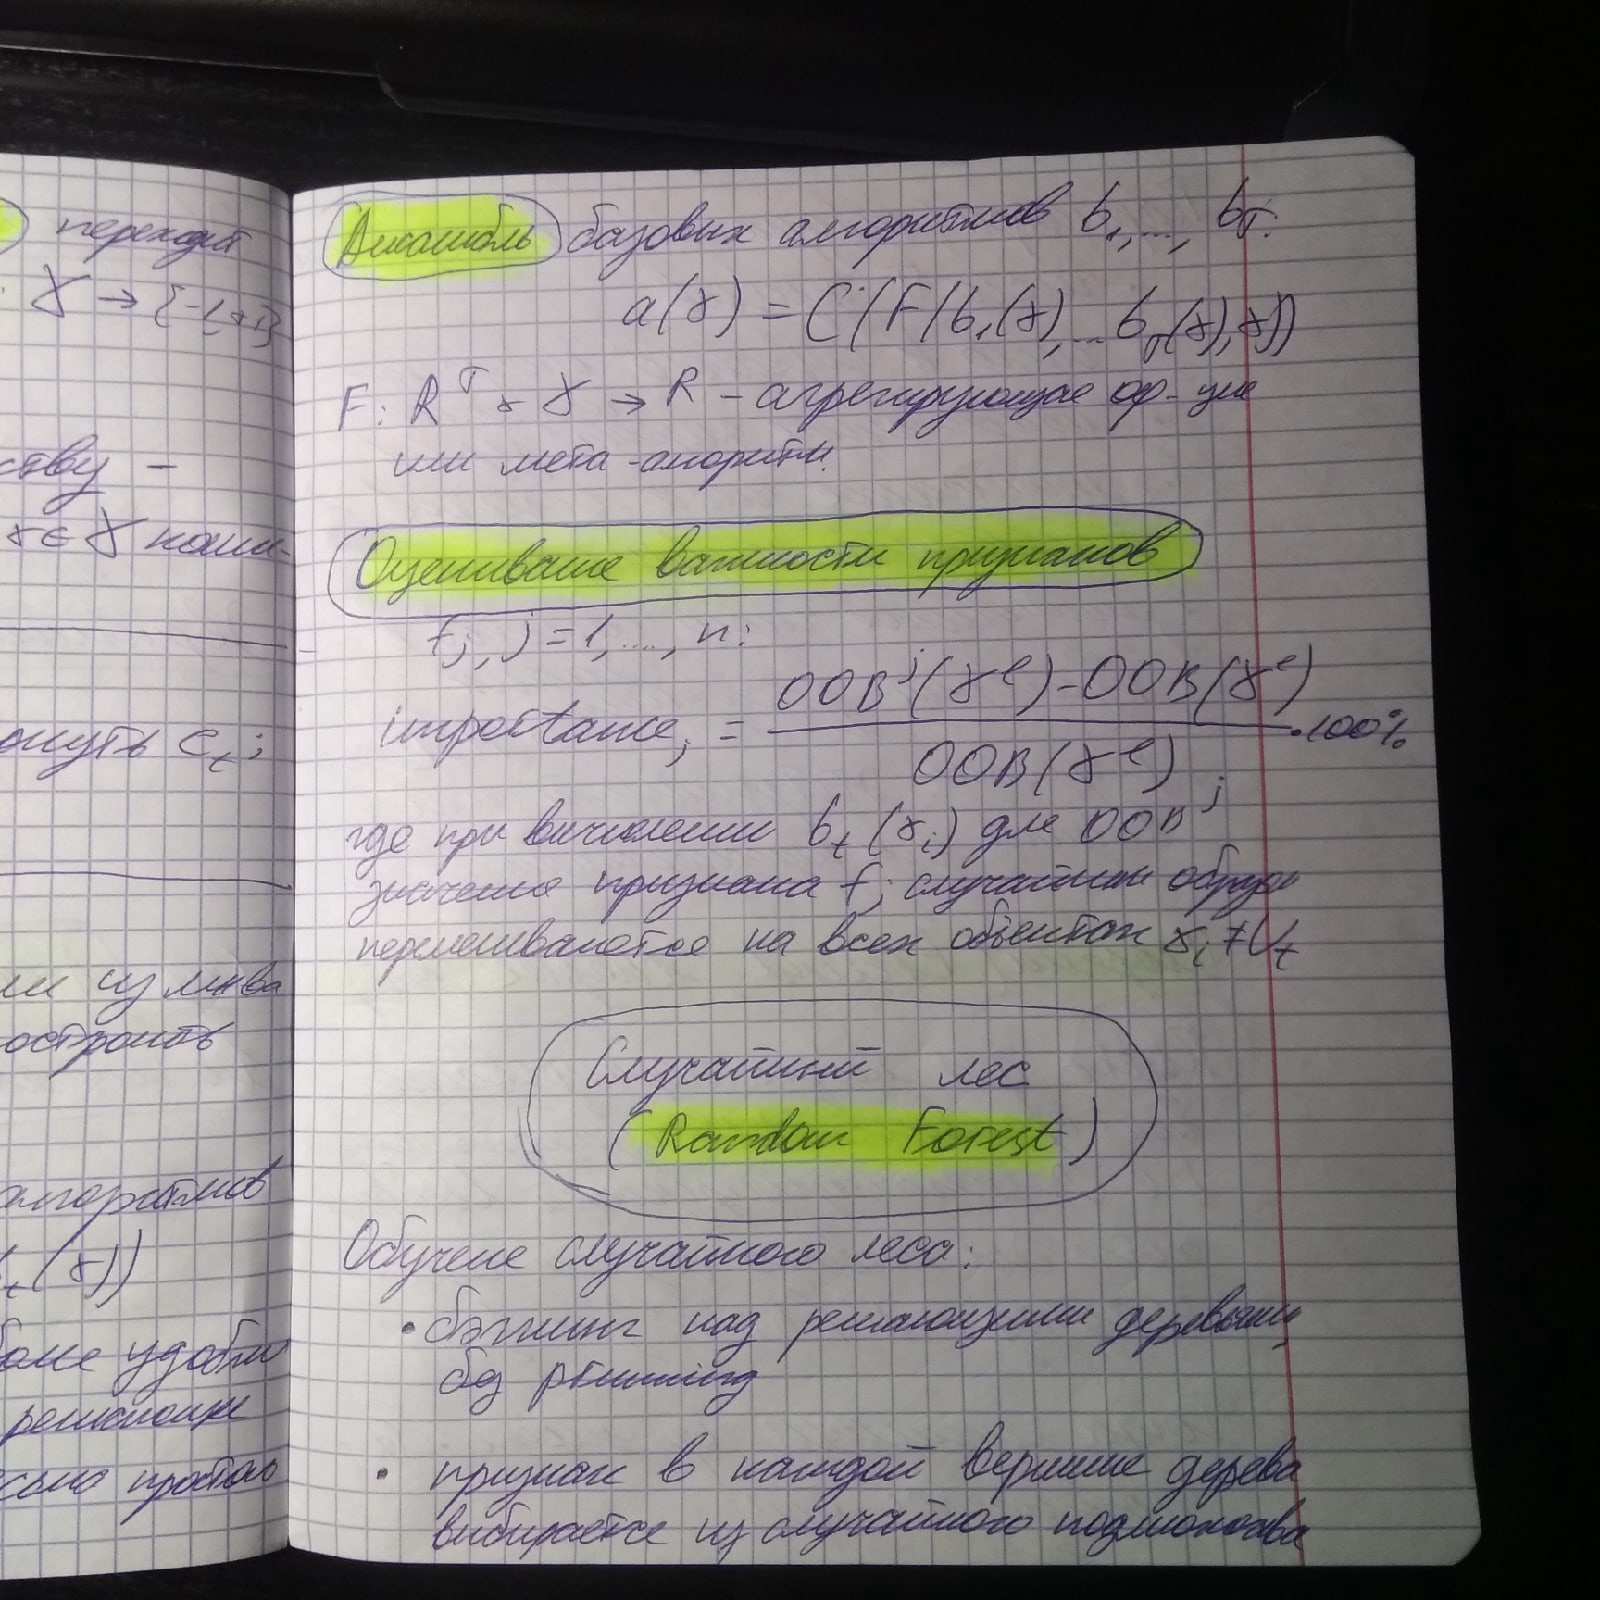 переходит
: X → {-1,+1}
ству –
x ∈ X
януть c_t;
из мн-ва
остроить
алгоритмов
_t(x))
удобно
решающие
Ансамбль базовых алгоритмов b_1, ..., b_T:
a(x) = C(F(b_1(x), ... b_T(x), x))
F: R^T × X → R – агрегирующая ф-ция
или мета-алгоритм.
Оценивание важности признаков
f_j, j = 1, ..., n:
importance_j = (OOB^j(X^l) - OOB(X^l)) / OOB(X^l) · 100%
где при вычислении b_t(x_i) для OOB^j
значения признака f_j случайным образом
перемешиваются на всех объектах x_i ∉ U_t
Случайный лес
(Random Forest)
Обучение случайного леса:
• бэггинг над решающими деревьями,
без pruning
• признак в каждой вершине дерева
выбирается из случайного подмножества